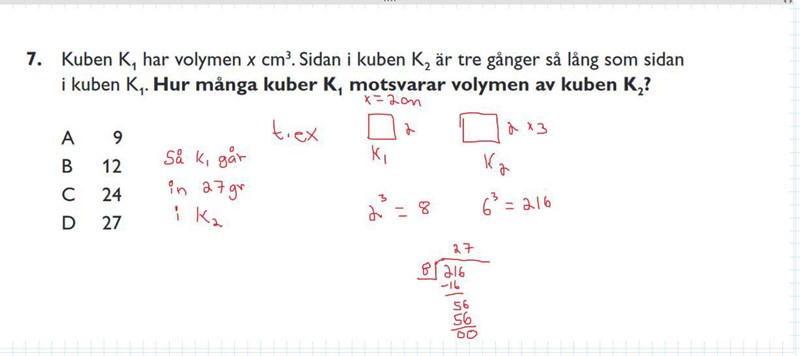 7. Kuben K₁ har volymen x cm³. Sidan i kuben K₂ är tre gånger så lång som sidan
i kuben K₁. Hur många kuber K₁ motsvarar volymen av kuben K₂?
A 9
B 12
C 24
D 27
Så K₁ går
in 27gr
i K₂
t.ex
x = 2cm
2
K₁
2 x 3
K₂
2³ = 8
6³ = 216
27
8 216
-16
56
56
00